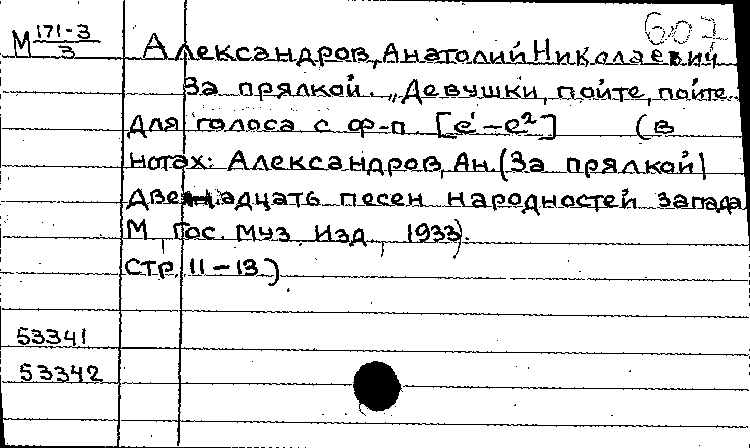 607
М 171-3/3
Александров, Анатолий Николаевич
За прялкой. „Девушки, пойте, пойте..
для голоса с ф-п. [e¹-e²] (в
нотах: Александров, Ан. (За прялкой)
Двенадцать песен народностей запада
М., Гос. муз. изд., 1933).
стр. 11-13).
53341
53342